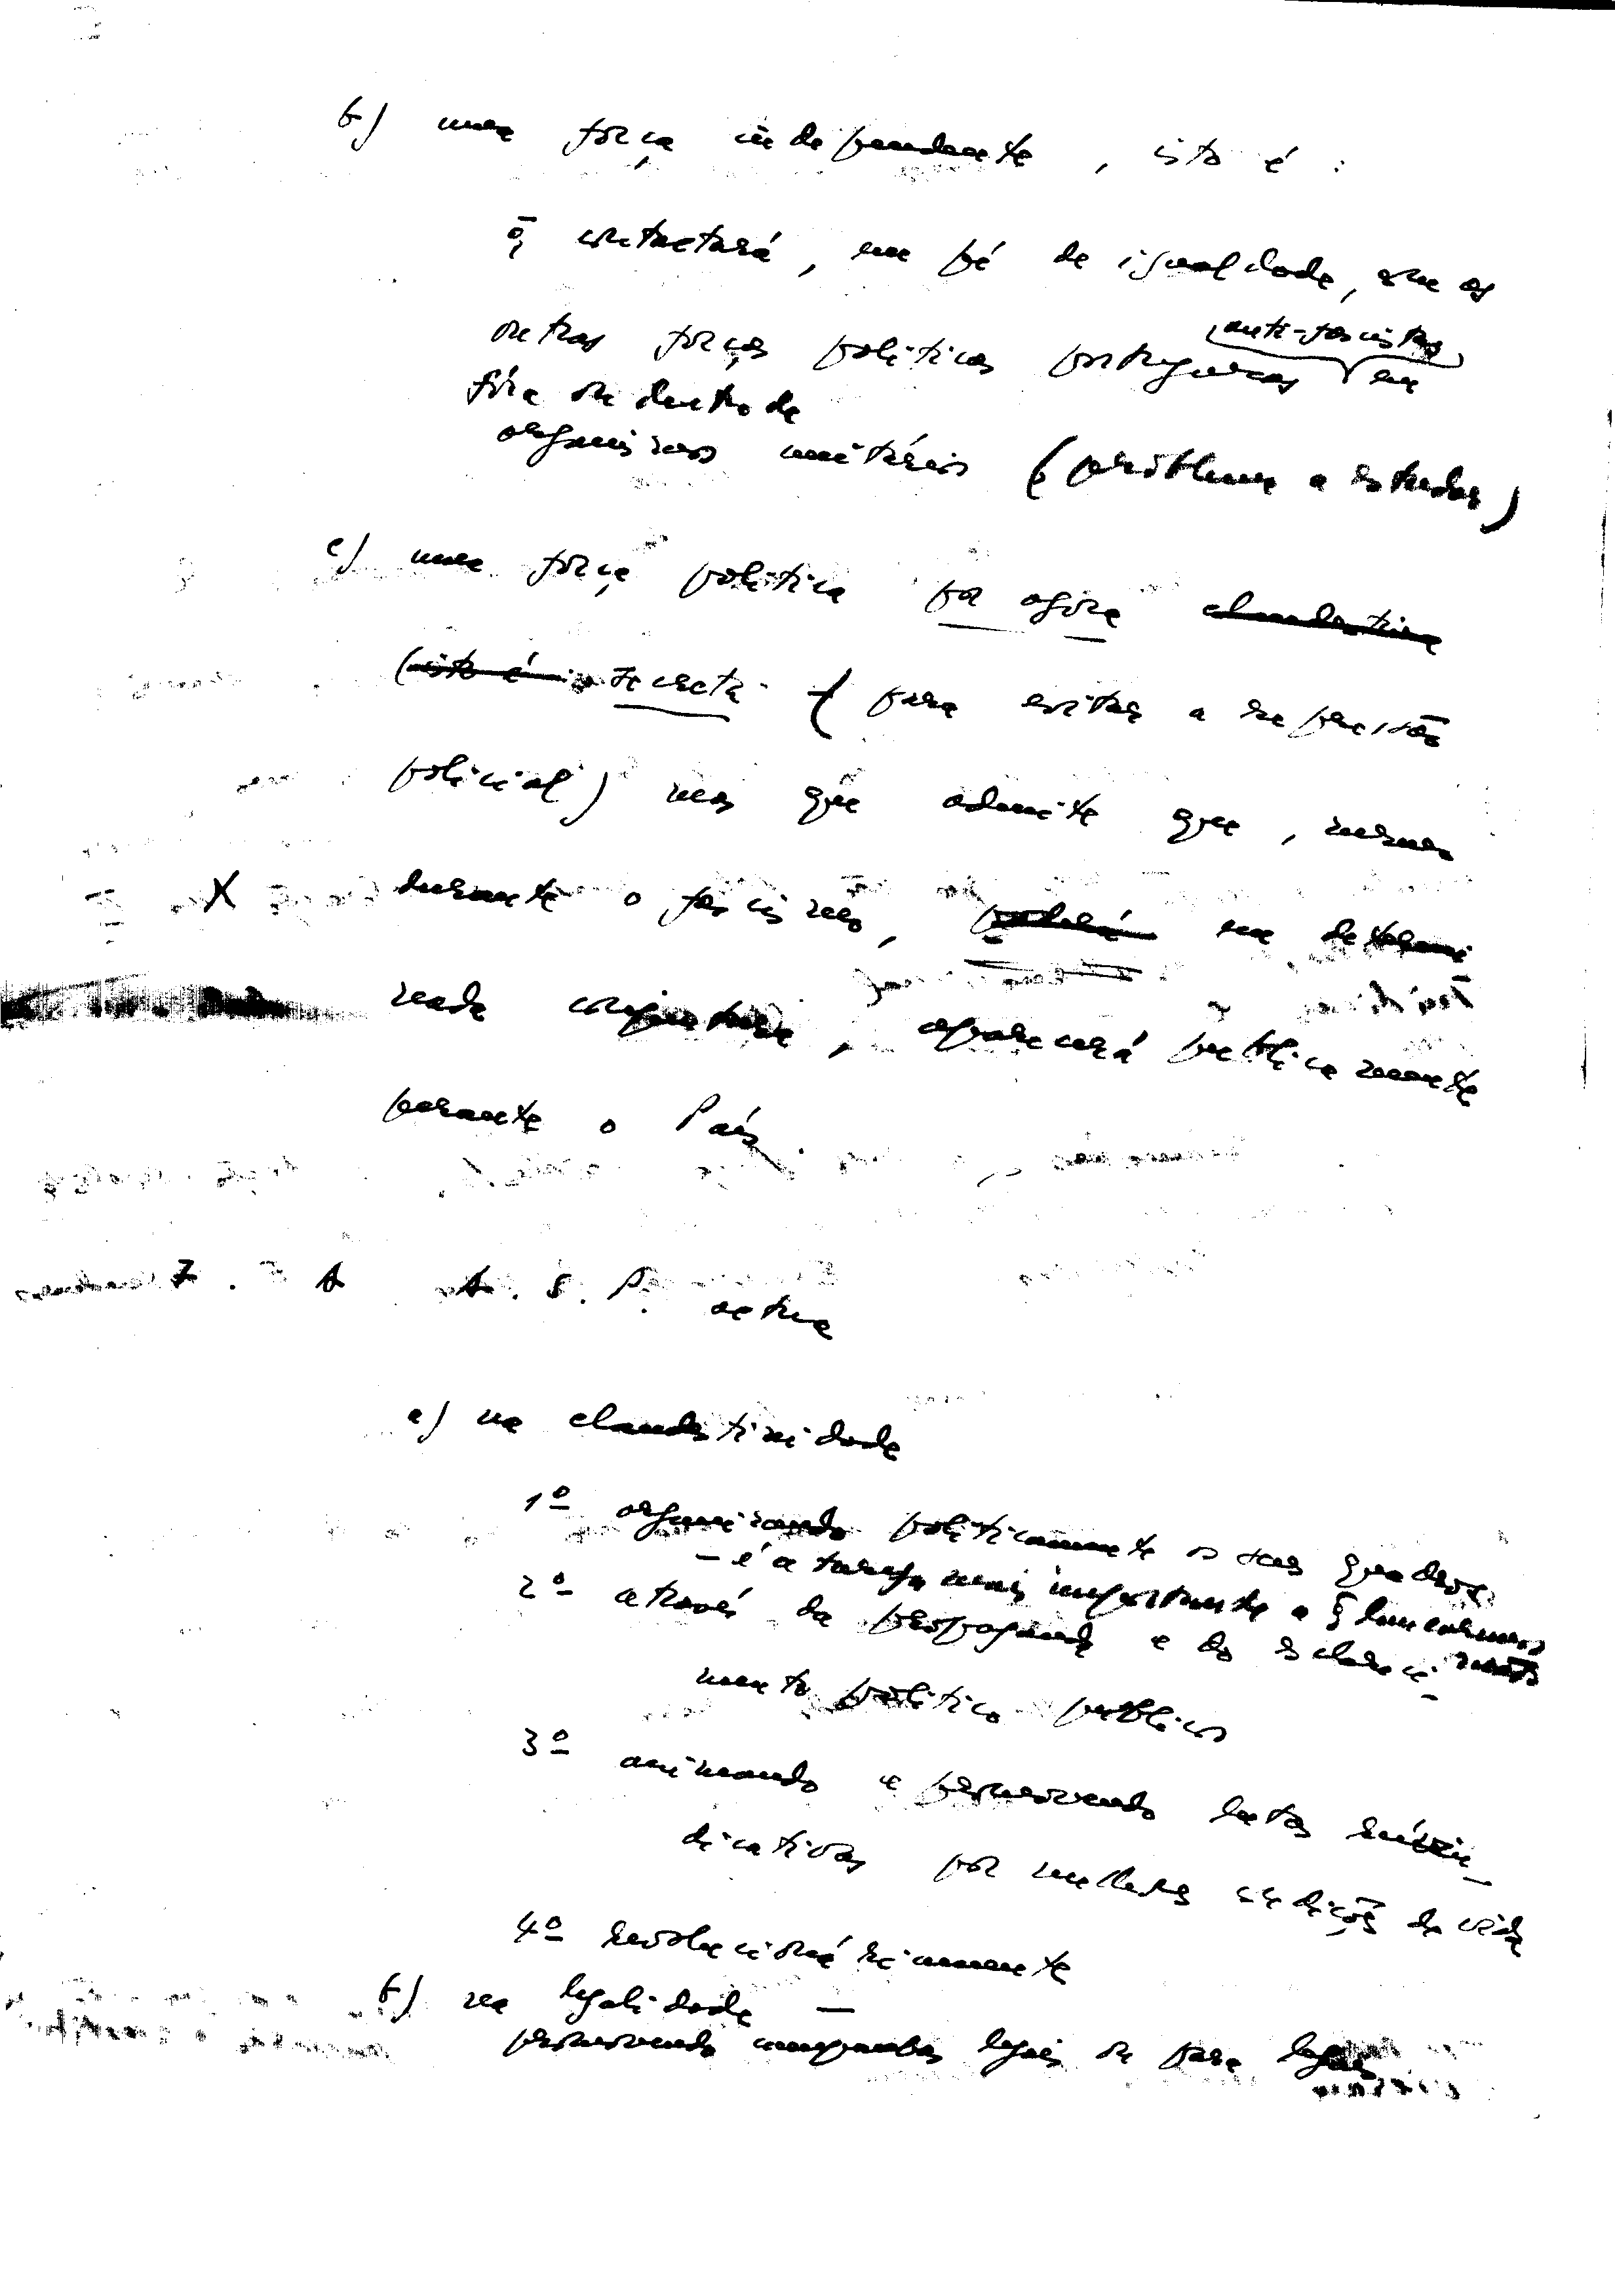 b) uma força independente, isto é:
q̄ contactará, em pé de igualdade, com as
anti-fascistas
outras forças políticas portuguesas em
fóra ou dentro de
organismos unitários (problema a estudar)
c) uma força política por agora clandestina
(isto é secreta (para evitar a repressão
policial) mas que admite que, mesmo
X durante o fascismo, poderá em determi
nada conjuntura, aparecerá publicamente
perante o País.
7. A A.S.P. actua
a) na clandestinidade
1º organizando politicamente os seus quadros
– é a tarefa mais importante a q̄ lançaremos mãos
2º através da propaganda e do esclareci_
mento político público
3º animando e promovendo lutas reivin_
dicativas por melhores condições de vida
4º revolucionáriamente
b) na legalidade —
promovendo campanhas legais ou para legais